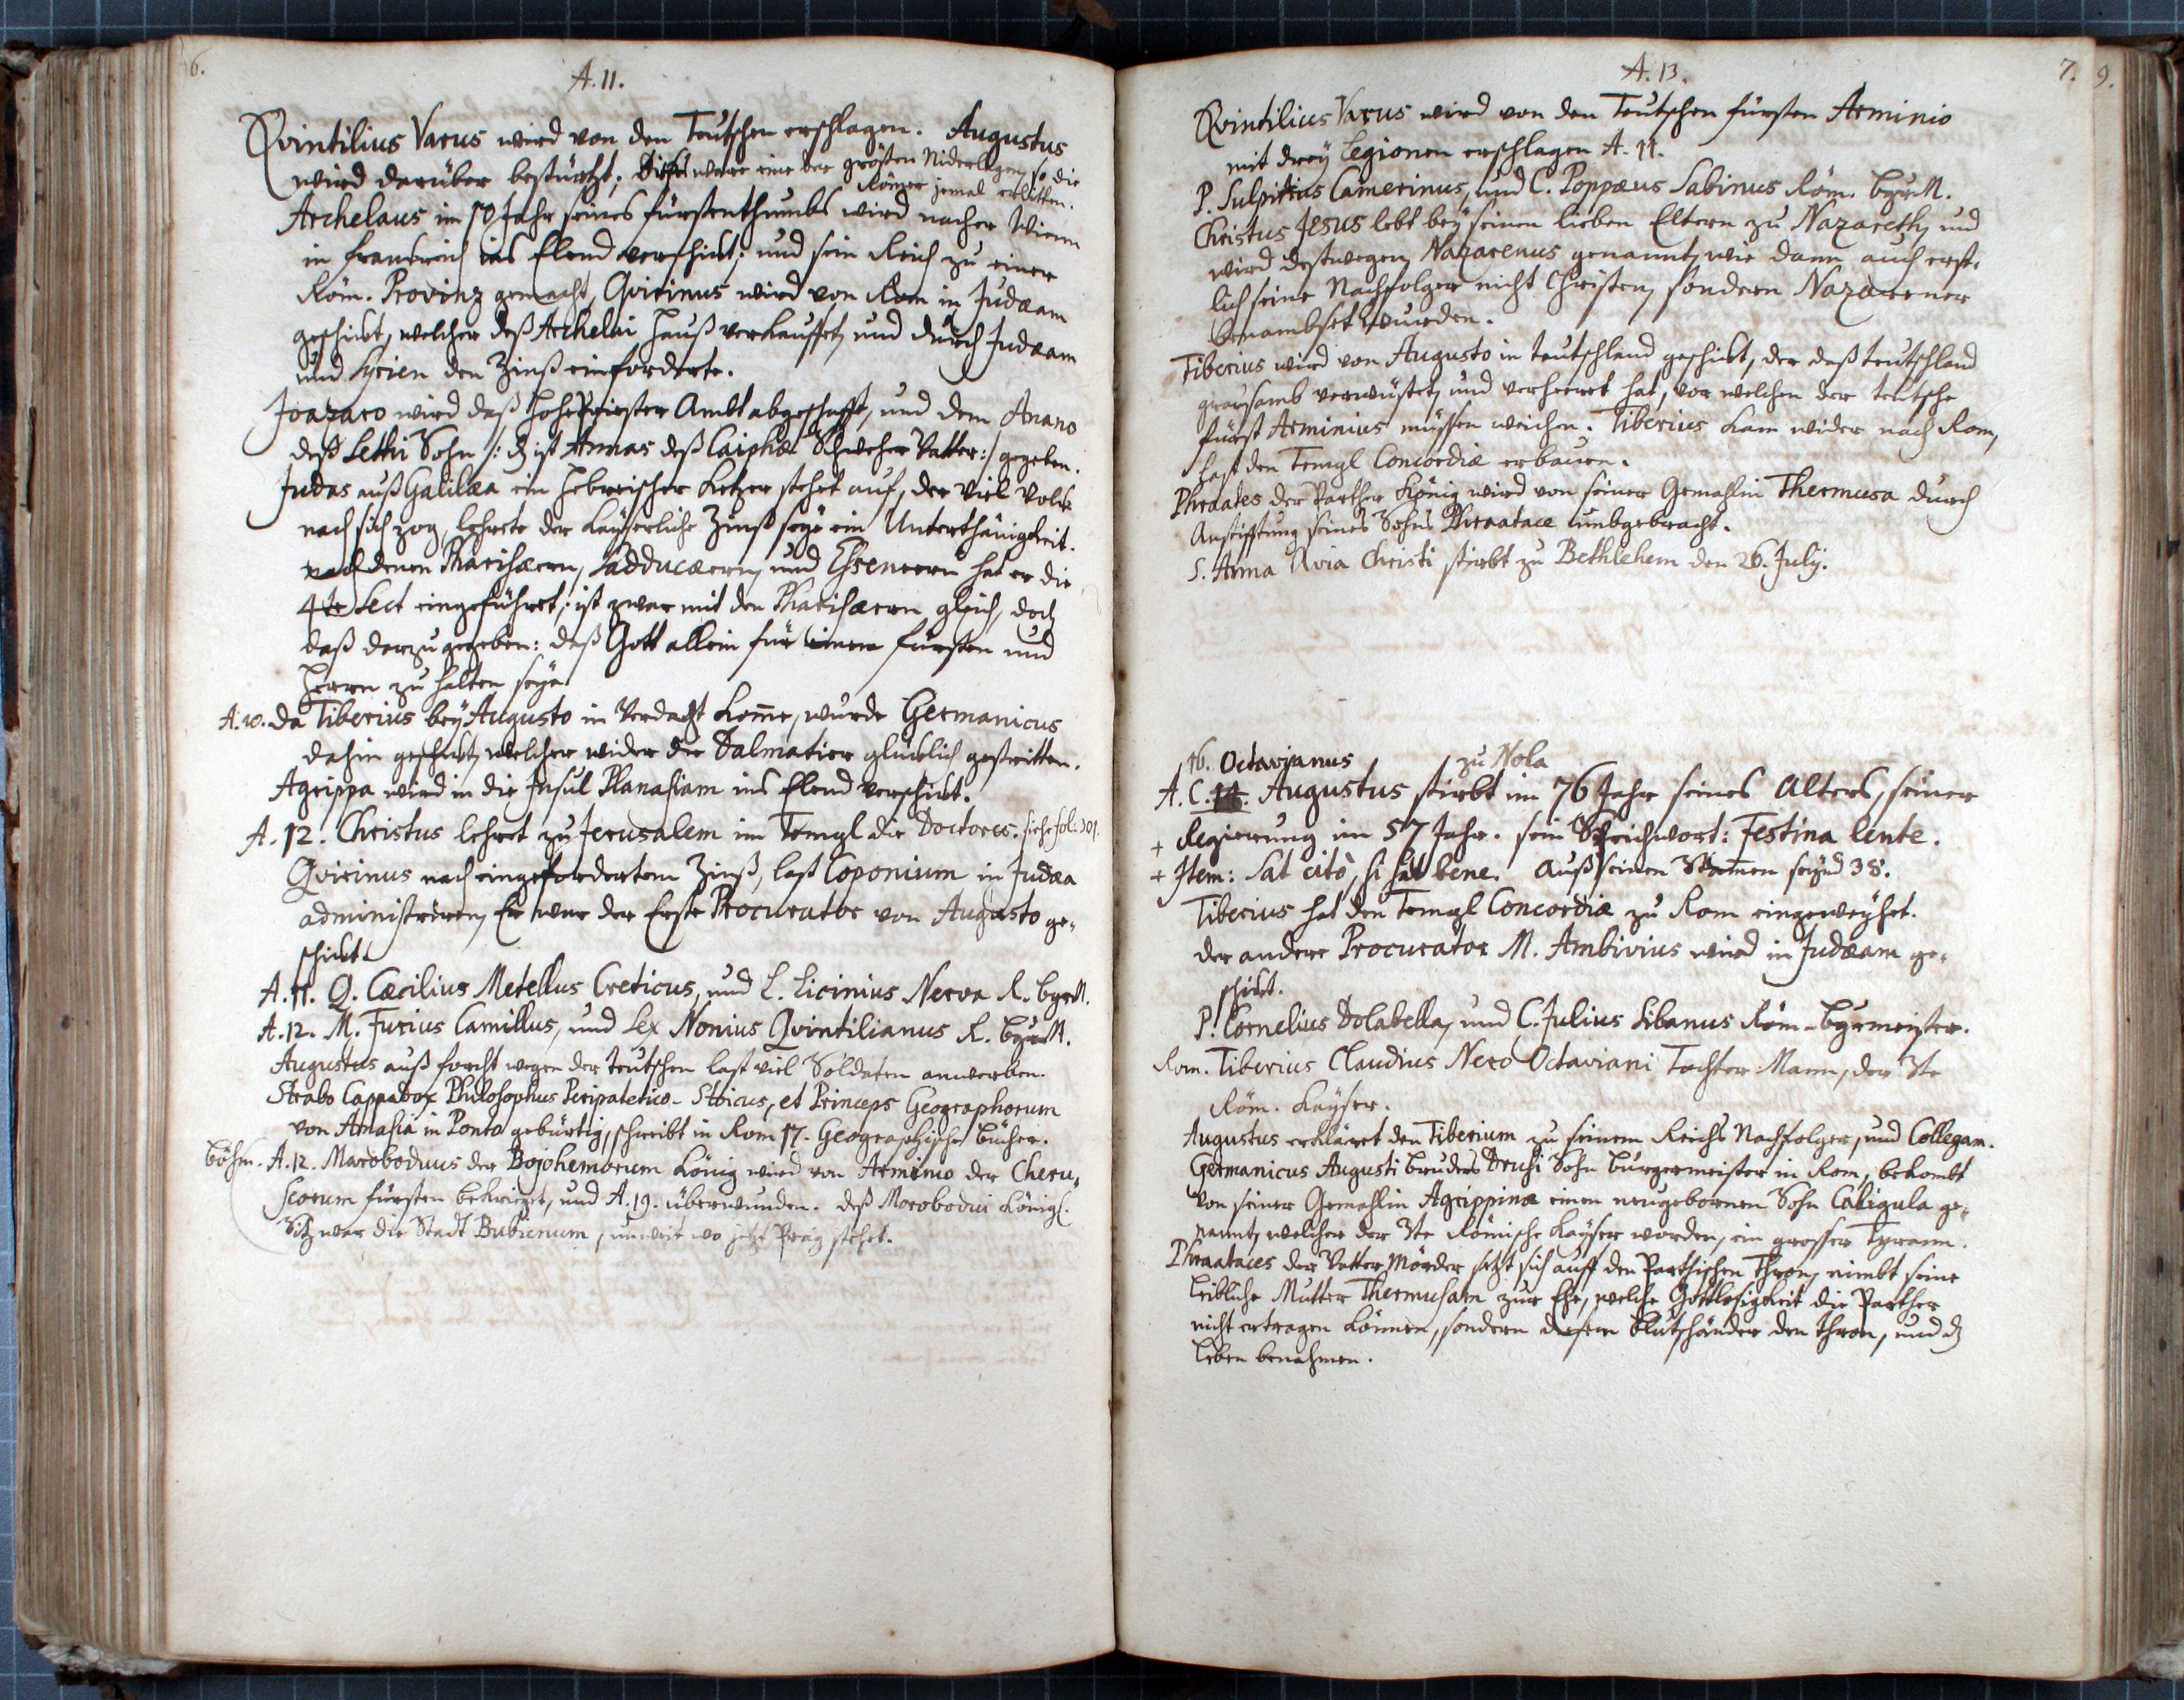 6.
A. 11.
Qvintilius Varus wird von den Teutschen erschlagen. Augustus
wird darüber bestürtzt; Dises ware eine der grösten Niderlagen, so die
Römer jemal erlitten.
Archelaus im 10 Jahr seines fürstenthumbs wird nacher Vienn
in franckreich ins Elend verschickt; und sein Reich zu einer
Röm. Provinz gemacht, Qvirinus wird von Rom in Judæam
geschickt, welcher deß Archelai Hauß verkauffet, und durch Judæam
und Syrien den Zinß einforderte.
Joazaro wird daß Hohe Priester Ambt abgeschafft, und dem Anano
deß Sethi Sohn /: dz ist Annas deß Caiphæ Schweher Vatter :/ gegeben.
Judas auß Galilæa ein Hebreischer Ketzer stehet auf, der viel Volck
nach sich zog, lehrete der Kayserliche Zinß seye ein Unterthänigkeit.
nach denen Pharisæern, Sadducæern, und Essenern hat er die
4te Sect eingeführet; ist zwar mit den Pharisæern gleich, doch
daß darzu gegeben: daß Gott allein für einen fürsten und
Herrn zu halten seye.
A. 10. Da Tiberius bey Augusto in Verdacht kom̄e, wurde Germanicus
dahin geschickt, welcher wider die Dalmatier glücklich gestritten.
Agrippa wird in die Insul Planasiam ins Elend verschickt.
A. 12. Christus lehret zu Jerusalem im Templ die Doctores. siehe fol: 301.
Qvirinus nach eingefordertem Zinß, last Coponium in Judæa
administriren, Er war der Erste Procurator von Augusto ge-
schickt.
A. 11. Q. Cæcilius Metellus Creticus, und L. Licinius Nerva R. byrM.
A. 12. M. Furius Camillus, und Sex Nonius Qvintilianus R. byrM.
Augustus auß forcht wegen der Teutschen last viel Soldaten anwerben.
Strabo Cappadox Philosophus Peripatetico-Stoicus, et Princeps Geographorum
von Amasia in Ponto gebürtig, schreibt in Rom 17. Geographische Bücher.
Böhm. A. 12. Maroboduus der Bojohemorum König wird von Arminio der Cheru-
scorum fürsten bekrieget, und A. 19. überwunden. deß Morobodui Königl.
Sitz war die Stadt Bubienum, unweit wo jetzt Prag stehet.
A. 13.
7. 9.
Qvintilius Varus wird von den Teutschen fürsten Arminio
mit drey Legionen erschlagen A. 11.
P. Sulpitius Camerinus, und C. Poppæus Sabinus Röm. byrM.
Christus Jesus lebt bey seinen lieben Eltern zu Nazareth, und
wird destwegen Nazarenus genannt, wie dann auch erst-
lich seine Nachfolger nicht Christen, sondern Nazarener
benambset wurden.
Tiberius wird von Augusto in teutschland geschickt, der daß teutschland
grausamb verwüstet, und verheeret hat, vor welchen der teutsche
fürst Arminius müssen weichen. Tiberius kam wider nach Rom,
hast den Templ Concordiæ erbauen.
Phraates der Parther König wird von seiner Gemahlin Thermusa durch
Anstifftung seines Sohns Phraatace umbgebracht.
S. Anna Avia Christi stirbt zu Bethlehem den 26. July.
16. Octavianus zu Nola
A. C. 14. Augustus stirbt im 76 Jahr seines Alters, seiner
+ Regierung im 57 Jahr. sein Sprichwort: Festina lente.
+ Item: Sat citò, si sat bene. Auß seinen Stam̄en seynd 38.
Tiberius hat den Templ Concordiæ zu Rom eingeweyhet.
der andere Procurator M. Ambivius wird in Judæam ge-
schickt.
P. Cornelius Dolabella, und C. Julius Silanus Röm. Byrmeister.
Rom. Tiberius Claudius Nero Octaviani Tochter Mann, der 3te
Röm. Kayser.
Augustus erkläret den Tiberium zu seinem Reichs Nachfolger, und Collegam.
Germanicus Augusti bruders Drusi Sohn burgermeister in Rom, bekombt
von seiner Gemahlin Agrippina einen neugebornen Sohn Caligula ge-
nannt, welcher der 3te Römische Kayser worden, ein grosser Tyrann.
Phraataces der Vatter Mörder setzt sich auff den Parthischen Thron, nimbt seine
leibliche Mutter Thermusam zur Ehe, welche Gottlosigkeit die Parther
nicht ertragen können, sondern disem Blutschänder den thron, und dz
leben benahmen.